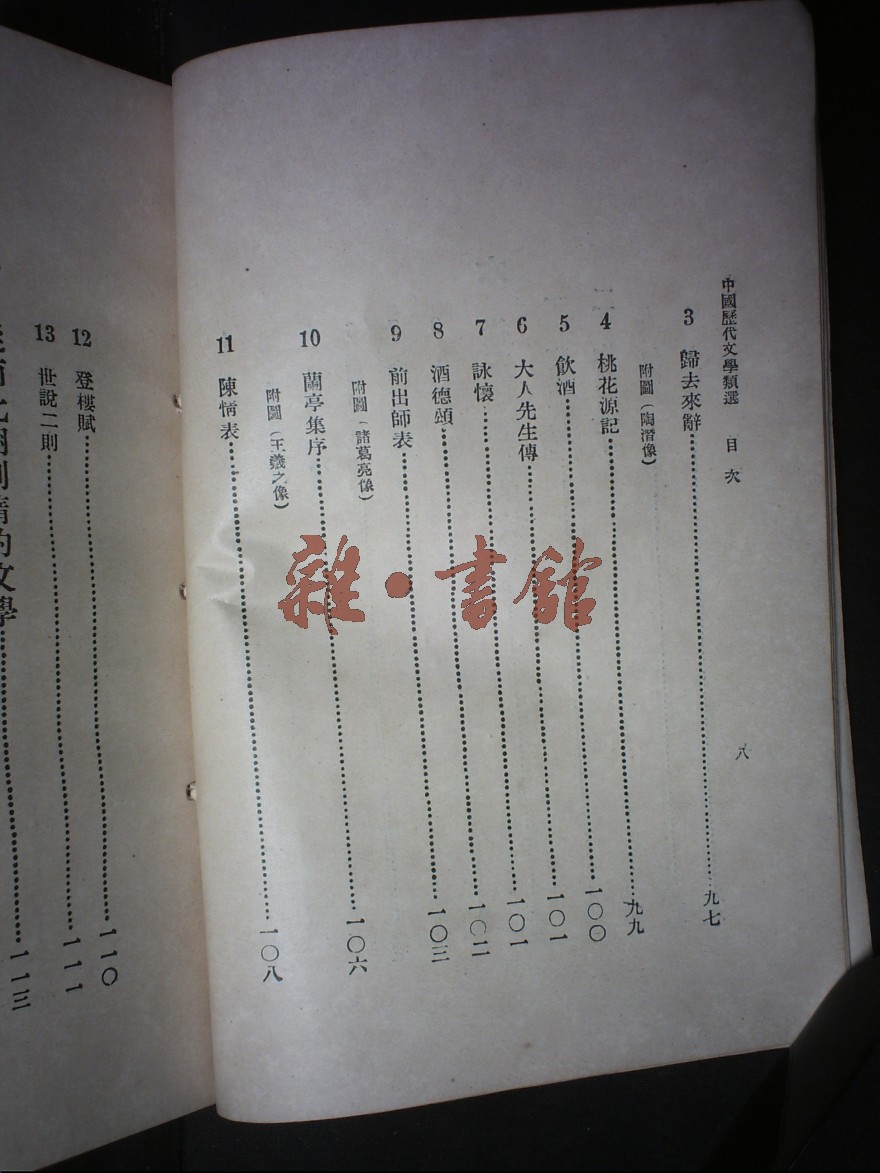 中國歷代文學類選 目次 八
3 歸去來辭……九七
附圖(陶潛像)
4 桃花源記……九九
5 飲酒……一〇〇
6 大人先生傳……一〇一
7 詠懷……一〇一
8 酒德頌……一〇二
9 前出師表……一〇三
附圖(諸葛亮像)
10 蘭亭集序……一〇六
附圖(王羲之像)
11 陳情表……一〇八
12 登樓賦……一一〇
13 世說二則……一一一
隋的文學……一一三
雜·書館